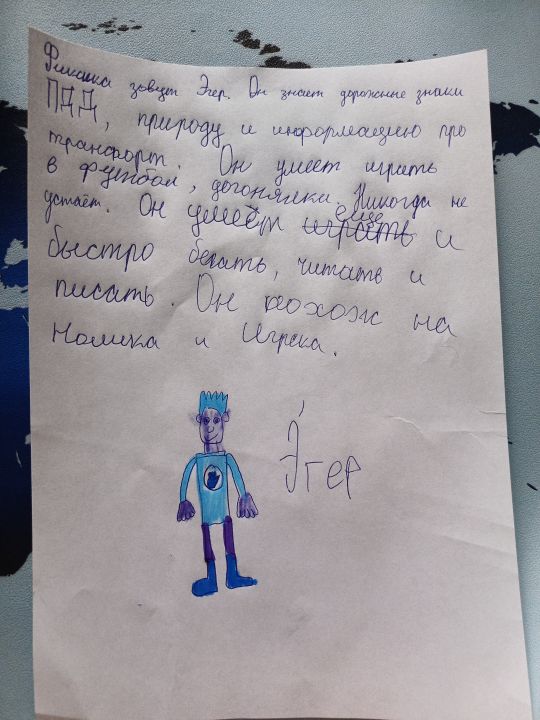 Фиксика зовут Эгер. Он знает дорожные знаки
ПДД, природу и информацию про
транфорт. Он умеет играть
в футбол, догонялки. Никогда не
устаёт. Он умеет играть еще и
быстро бегать, читать и
писать. Он похож на
Нолика и Игрека.
Э́гер